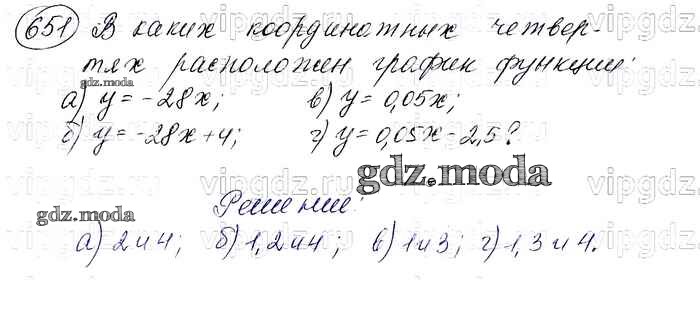 651 В каких координатных четвер-
тях расположен график функции:
а) y = -28x; в) y = 0,05x;
б) y = -28x + 4; г) y = 0,05x - 2,5?
gdz.moda
gdz.moda
Решение:
gdz.moda
а) 2 и 4; б) 1, 2 и 4; в) 1 и 3; г) 1, 3 и 4.